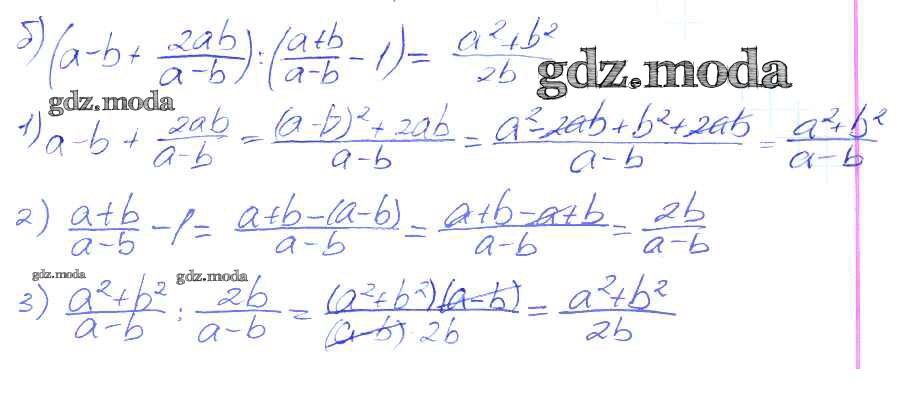 б) (a-b + 2ab/(a-b)) : ((a+b)/(a-b) - 1) = (a²+b²)/2b
gdz.moda
gdz.moda
1) a-b + 2ab/(a-b) = ((a-b)²+2ab)/(a-b) = (a²-2ab+b²+2ab)/(a-b) = (a²+b²)/(a-b)
2) (a+b)/(a-b) - 1 = (a+b-(a-b))/(a-b) = (a+b-a+b)/(a-b) = 2b/(a-b)
gdz.moda
gdz.moda
3) (a²+b²)/(a-b) : 2b/(a-b) = ((a²+b²)(a-b))/((a-b)·2b) = (a²+b²)/2b